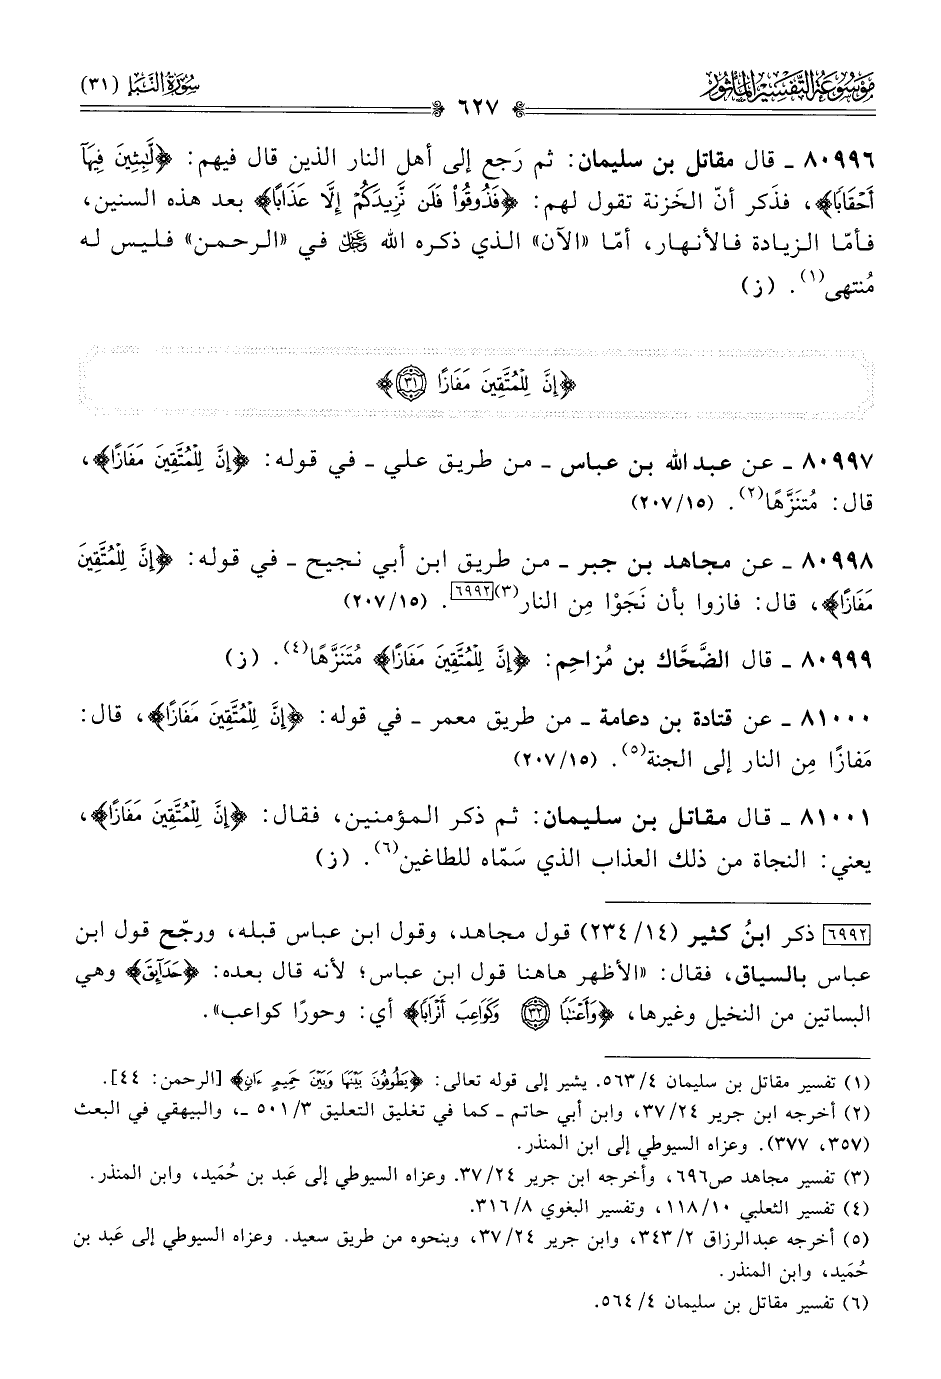 مَوْسُوعَةُ التَّفْسِيرِ المَأْثُور
سُورَةُ النَّبَإِ (٣١)
٦٢٧
٨٠٩٩٦ ـ قال مقاتل بن سليمان: ثم رَجع إلى أهل النار الذين قال فيهم: ﴿لَّٰبِثِينَ فِيهَآ
أَحْقَابًا﴾، فذَكر أنّ الخَزنة تقول لهم: ﴿فَذُوقُوا۟ فَلَن نَّزِيدَكُمْ إِلَّا عَذَابًا﴾ بعد هذه السنين،
فأمّا الزيادة فالأنهار، أمّا «الآن» الذي ذكره الله ﷻ في «الرحمن» فليس له
مُنتهى(١). (ز)
﴿إِنَّ لِلْمُتَّقِينَ مَفَازًا ٣١﴾
٨٠٩٩٧ ـ عن عبد الله بن عباس ـ من طريق علي ـ في قوله: ﴿إِنَّ لِلْمُتَّقِينَ مَفَازًا﴾،
قال: مُتنَزَّهًا(٢). (٢٠٧/١٥)
٨٠٩٩٨ ـ عن مجاهد بن جبر ـ من طريق ابن أبي نجيح ـ في قوله: ﴿إِنَّ لِلْمُتَّقِينَ
مَفَازًا﴾، قال: فازوا بأن نَجَوْا مِن النار(٣)[٦٩٩٢]. (٢٠٧/١٥)
٨٠٩٩٩ ـ قال الضَّحَّاك بن مُزاحِم: ﴿إِنَّ لِلْمُتَّقِينَ مَفَازًا﴾ مُتَنَزَّهًا(٤). (ز)
٨١٠٠٠ ـ عن قتادة بن دعامة ـ من طريق معمر ـ في قوله: ﴿إِنَّ لِلْمُتَّقِينَ مَفَازًا﴾، قال:
مَفازًا مِن النار إلى الجنة(٥). (٢٠٧/١٥)
٨١٠٠١ ـ قال مقاتل بن سليمان: ثم ذكر المؤمنين، فقال: ﴿إِنَّ لِلْمُتَّقِينَ مَفَازًا﴾،
يعني: النجاة من ذلك العذاب الذي سَمّاه للطاغين(٦). (ز)
[٦٩٩٢] ذكر ابنُ كثير (٢٣٤/١٤) قول مجاهد، وقول ابن عباس قبله، ورجّح قول ابن
عباس بالسياق، فقال: «الأظهر هاهنا قول ابن عباس؛ لأنه قال بعده: ﴿حَدَآئِقَ﴾ وهي
البساتين من النخيل وغيرها، ﴿وَأَعْنَٰبًا ٣٢ وَكَوَاعِبَ أَتْرَابًا﴾ أي: وحورًا كواعب».
(١) تفسير مقاتل بن سليمان ٥٦٣/٤. يشير إلى قوله تعالى: ﴿يَطُوفُونَ بَيْنَهَا وَبَيْنَ حَمِيمٍ ءَانٍ﴾ [الرحمن: ٤٤].
(٢) أخرجه ابن جرير ٣٧/٢٤، وابن أبي حاتم ـ كما في تغليق التعليق ٥٠١/٣ ـ، والبيهقي في البعث
(٣٥٧، ٣٧٧). وعزاه السيوطي إلى ابن المنذر.
(٣) تفسير مجاهد ص٦٩٦، وأخرجه ابن جرير ٣٧/٢٤. وعزاه السيوطي إلى عَبد بن حُمَيد، وابن المنذر.
(٤) تفسير الثعلبي ١١٨/١٠، وتفسير البغوي ٣١٦/٨.
(٥) أخرجه عبدالرزاق ٣٤٣/٢، وابن جرير ٣٧/٢٤، وبنحوه من طريق سعيد. وعزاه السيوطي إلى عَبد بن
حُمَيد، وابن المنذر.
(٦) تفسير مقاتل بن سليمان ٥٦٤/٤.